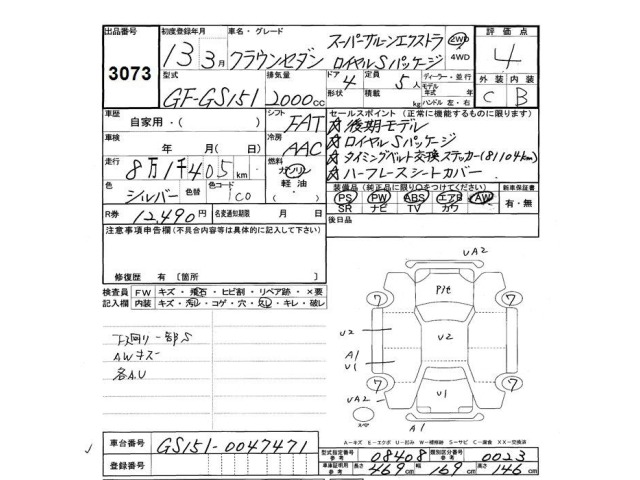 出品番号
3073
初度登録年月
13年 3月
車名・グレード
クラウンセダン
スーパーサルーンエクストラ
ロイヤルSパッケージ
2WD
4WD
評価点
4
型式
GF-GS151
排気量
2000cc
ドア 4
形状
定員 5人
積載 kg
ディーラー・並行
モデル年式 年
ハンドル 左・右
外装 内装
C B
車歴
自家用・( )
シフト
FAT
セールスポイント (正常に機能するものに限ります)
☆後期モデル
☆ロイヤルSパッケージ
☆タイミングベルト交換ステッカー(81104km)
☆ハーフレースシートカバー
車検
年 月( 日)
冷房
AAC
走行
8万1千405km
燃料
ガソリン
軽油
色
シルバー
色替
色コード
1C0
装備品 (純正品に限り○をつけてください)
PS PW ABS エアB AW
SR ナビ TV カワ
新車保証書
有・無
R券
12,490円
名変通知期限 月 日
後日品
注意事項申告欄(不具合内容等は具体的に記入して下さい)
修復歴 有 [箇所 ]
検査員記入欄
FW キズ・飛石・ヒビ割・リペア跡・×要
内装 キズ・汚レ・コゲ・穴・スレ・キレ・破レ
下廻り一部S
AWキズ
各A.U
UA2
P/セ
7
7
U2
U2
A1
U1
7
7
U1
UA2
A1
スペア
A-キズ E-エクボ U-凹み W-補修跡 S-サビ C-腐食 XX-交換済
車台番号
GS151-0047471
登録番号
型式指定番号 参考
08408
類別区分番号 参考
0023
車庫証明用 参考
長さ 469cm 幅 169cm 高さ 146cm